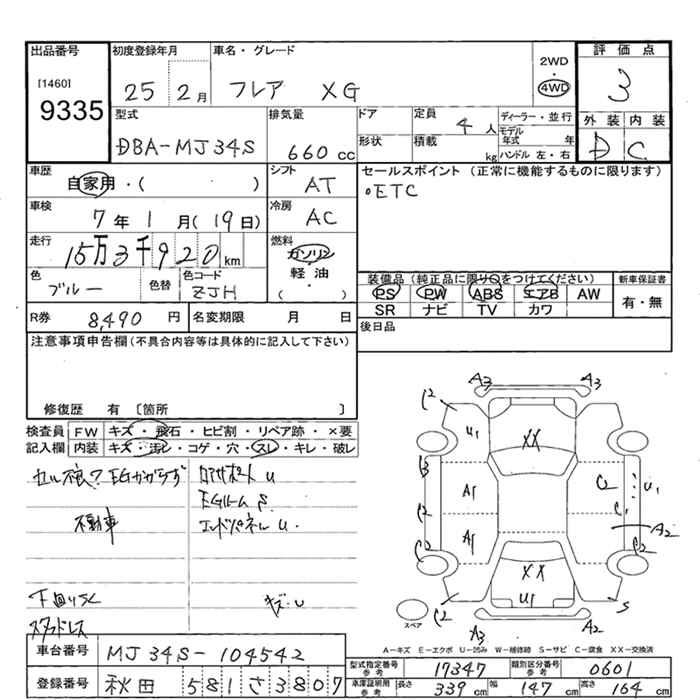 出品番号 初度登録年月 車名・グレード 評価点
[1460] 9335 25 2月 フレア XG 2WD 4WD 3
型式 排気量 ドア 定員 4人 ディーラー・並行 外装 内装
DBA-MJ34S 660cc 形状 積載 kg モデル年式 年 ハンドル 左・右 D C
車歴 自家用・( ) シフト AT セールスポイント (正常に機能するものに限ります)
車検 7年1月(19日) 冷房 AC 。ETC
走行 15万3千920km 燃料 ガソリン 軽油 ・( )
色 ブルー 色替 色コード ZJH
装備品(純正品に限り○をつけてください) 新車保証書
PS PW ABS エアB AW 有・無
SR ナビ TV カワ
R券 8,490円 名変期限 月 日 後日品
注意事項申告欄(不具合内容等は具体的に記入して下さい)
修復歴 有 [箇所 ]
検査員 FW キズ・飛石・ヒビ割・リペア跡・×要
記入欄 内装 キズ・汚レ・コゲ・穴・スレ・キレ・破レ
セル不良? EGかからず
EGルーム S
不動車 エンドパネル U.
下回りSC キズ・U
スタッドレス
A3 A3
C2 U1 XX
B A1 C2 U1
C2 C1 A2
A1 C2
C2 XX C2
C2 U1 S
A3 A2
スペア
A-キズ E-エクボ U-凹み W-補修跡 S-サビ C-腐食 XX-交換済
車台番号 MJ34S-104542
型式指定番号 参考 17347 類別区分番号 参考 0601
登録番号 秋田 581さ3807
車庫証明用 参考 長さ 339cm 幅 147cm 高さ 164cm